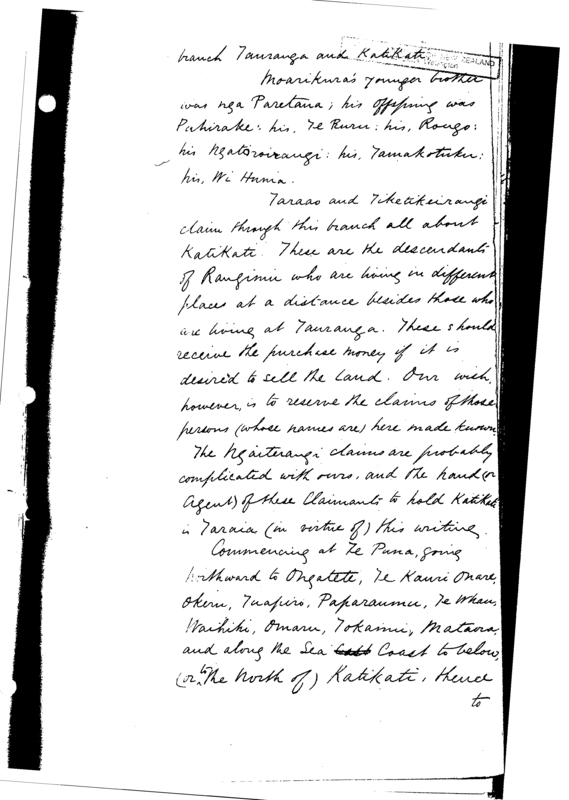 branch Tauranga and Katikati.
NEW ZEALAND
Moarikura's younger brother
was nga Paretana; his offspring was
Puhirake: his, Te Ruru: his, Rongo:
his Ngatoroirangi: his, Tamakotuku:
his, Wi Hunia.
Taraao and Tiketikeirangi
claim through this branch all about
Katikati. These are the descendants
of Rangimu who are living in different
places at a distance besides those who
are living at Tauranga. These should
receive the purchase money if it is
desired to sell the Land. Our wish,
however, is to reserve the claims of those
persons (whose names are) here made known.
The Ngaiterangi claims are probably
complicated with ours, and the hand (or
Agent) of these Claimants to hold Katikati
is Taraia (in virtue of) this writing.
Commencing at Te Puna, going
Northward to Ongatete, Te Kauri Onare,
Okeru, Tuapiro, Paparaumu, Te Whau,
Waihihi, Omaru, Tokamu, Mataora,
and along the Sea Coast to below,
(or to the North of) Katikati, thence
to